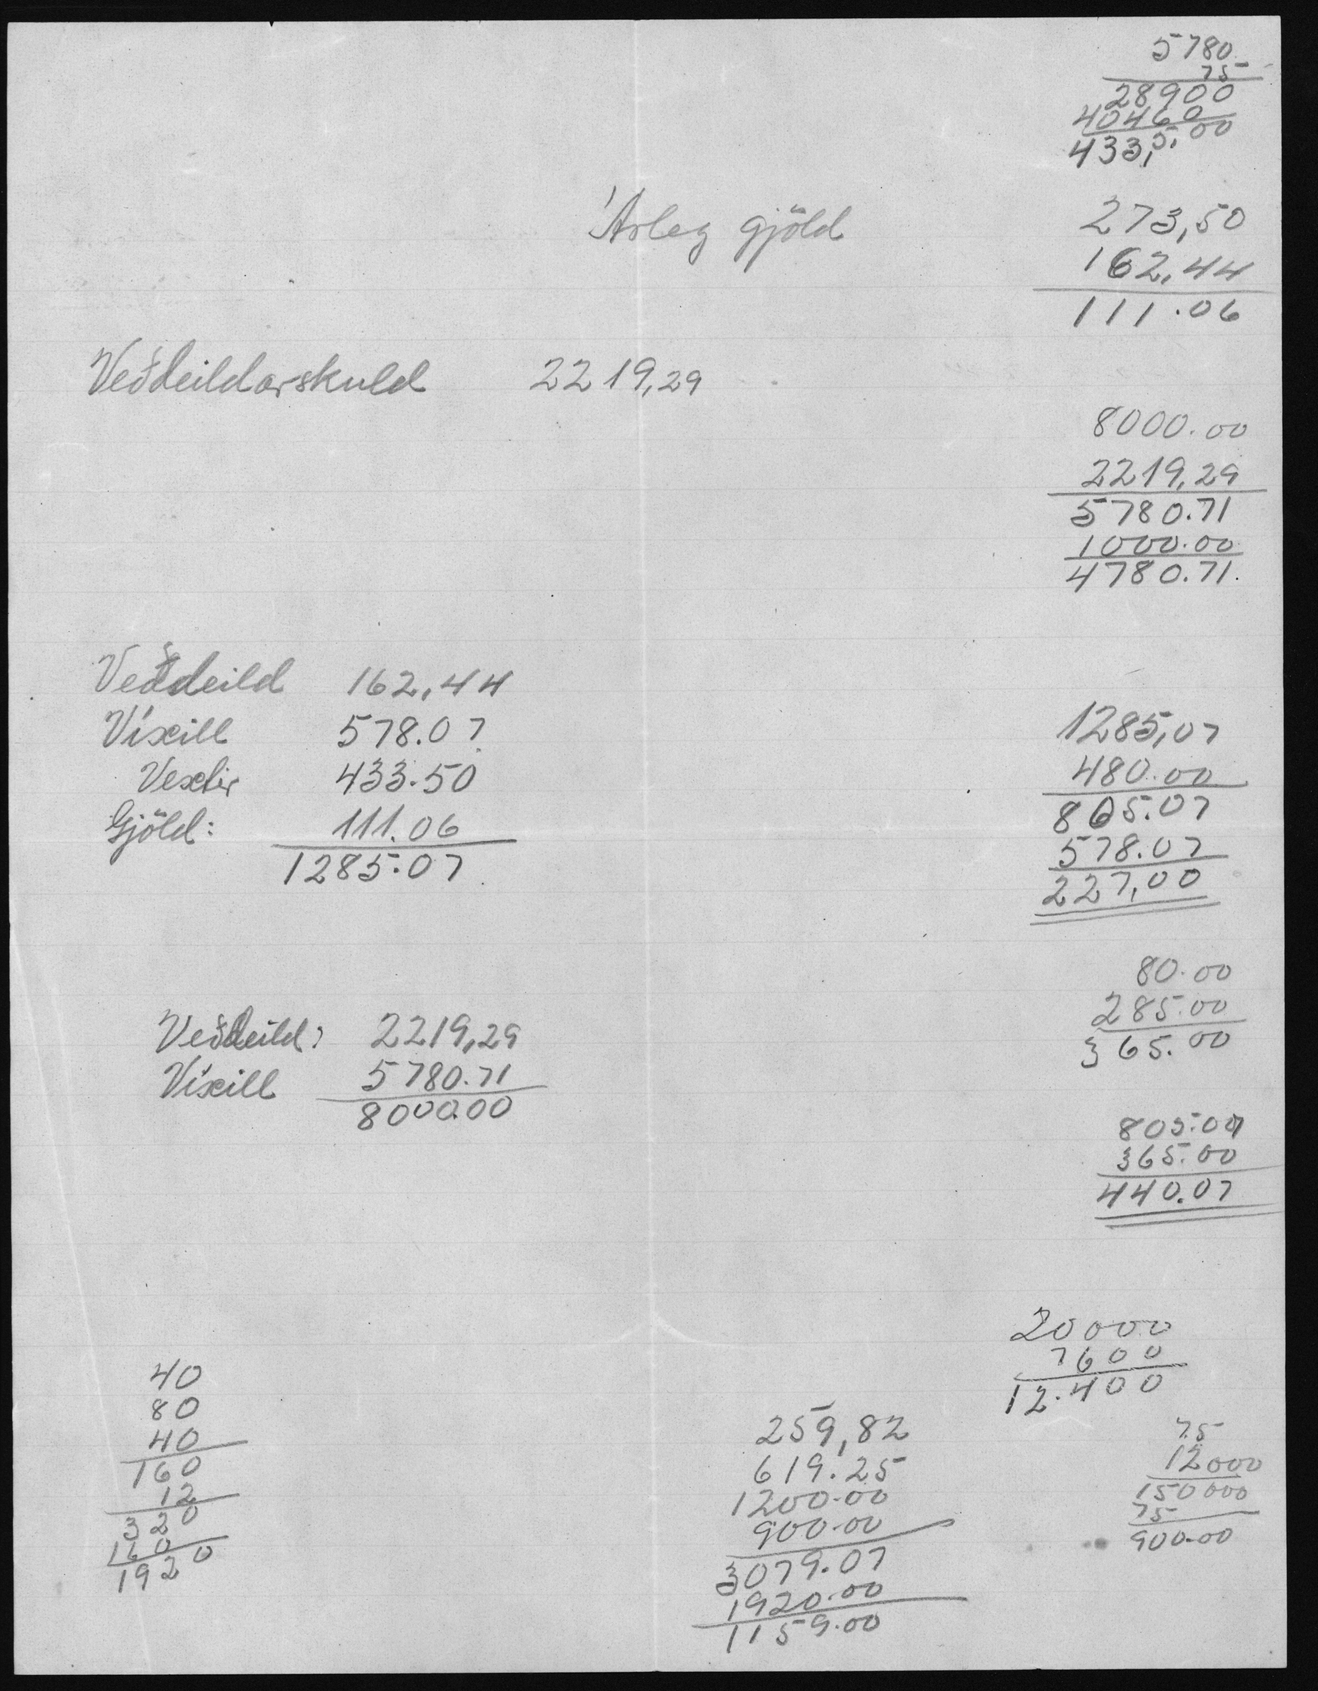 5780
75
28900
40460
433,5,00
Árleg gjöld
273,50
162,44
111.06
Veðdeildarskuld 2219,29
8000.00
2219,29
5780.71
1000.00
4780.71.
Veðdeild 162,44
Víxill 578.07
Vextir 433.50
Gjöld: 111.06
1285.07
1285,07
480.00
805.07
578.07
227,00
80.00
285.00
365.00
Veðdeild: 2219,29
Víxill 5780.71
8000.00
805.07
365.00
440.07
20000
7600
12.400
40
80
40
160
12
320
160
1920
259,82
619.25
1200.00
900.00
3079.07
1920.00
1159.00
7.5
12000
150000
75
900.00